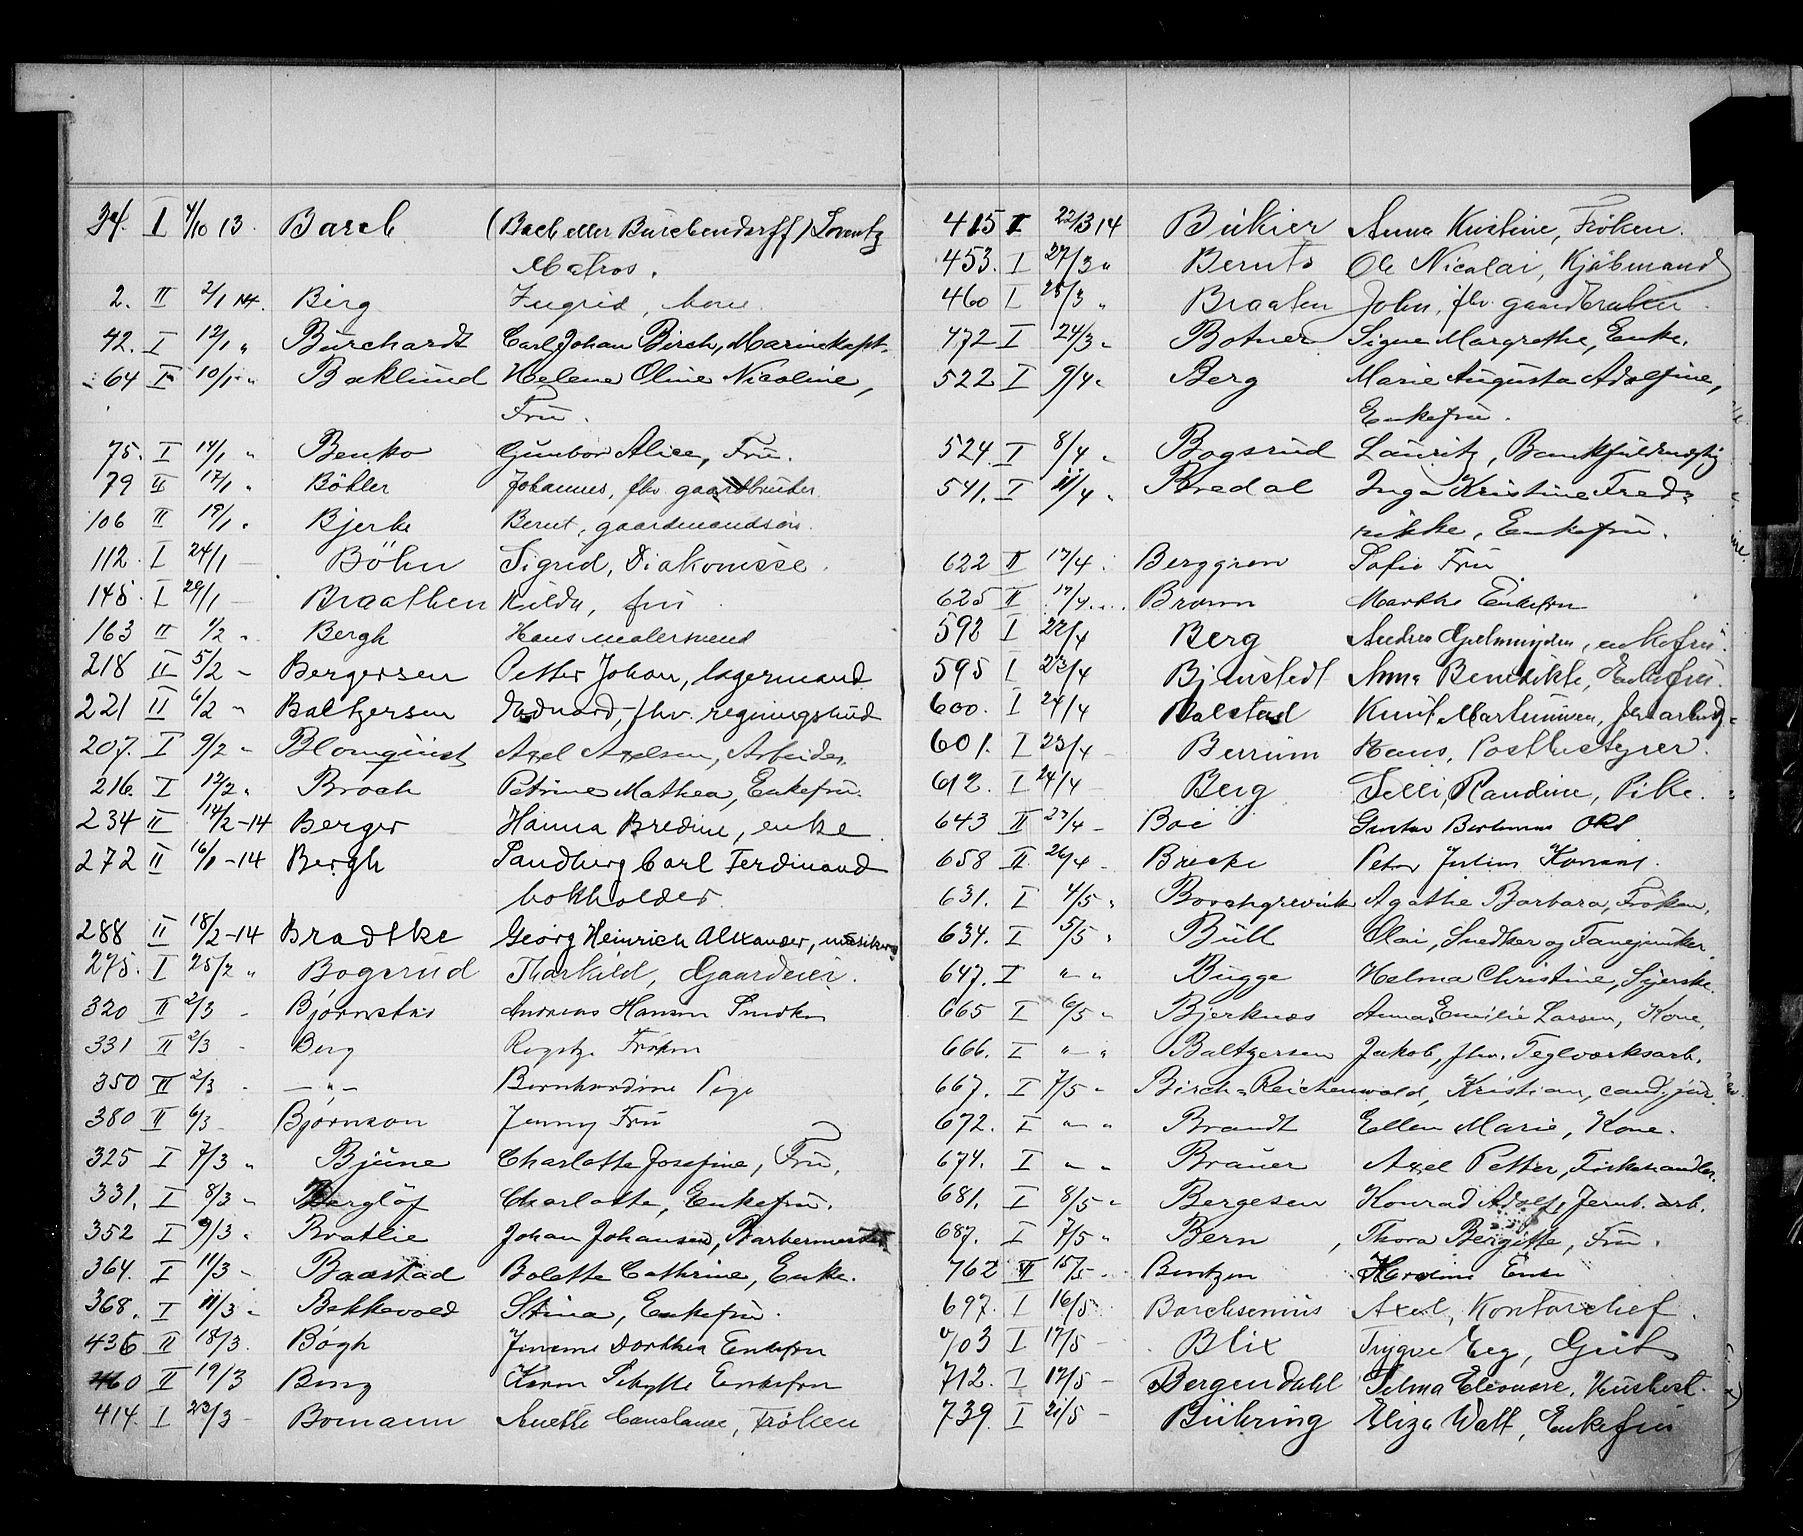 34. I 4/10 13. Barch (Bach eller Burchendorff) Lorentz
Matros.
2. II 2/1 14. Berg Ingrid, kone.
42. I 12/1 " Burchardt Carl Johan Birch, Marinekapt.
64 I 10/1 " Baklund Helene Oline Nicoline,
Fru.
75. I 14/1 " Benko Gunbor Alice, Fru.
79 II 17/1 " Böhler Johannes, fhv. gaardbruker
106 II 19/1 " Bjerke Bernt, gaardmandsøn.
112. I 24/1 — Böhn Sigrid, Diakonisse.
148. I 29/1 — Braathen Hilda, fru
163 II 1/2 " Bergh Hans malersvend
218 II 5/2 - Bergersen Petter Johan, lagermand
221 II 6/2 " Baltzersen Edvard, fhv. regningsbud
207. I 9/2 " Blomquist Axel Axelsen, Arbeider.
216. I 12/2 " Broch Petrine Mathea, Enkefru.
234 II 14/2-14 Berger Hanna Bredine, enke
272 II 16/1-14 Bergh Sandberg Carl Ferdinand
bokholder.
288 II 18/2-14 Bradtke Georg Heinrich Alexander, musiker
275. I 25/2 " Bogerud Thorkild, Gaardeier.
320 II 2/3 - Bjørnstad Andreas Hansen Snedker
331 II 2/3 - Berg Regitze Frøken
350 II 2/3 - — " — Bernhardine Pige
380 II 6/3 - Bjørnson Jenny Fru
325 I 7/3 " Bjune Charlotte Josefine, Fru.
331. I 8/3 " Berglöf Charlotte, Enkefru.
352 I 9/3 " Bratlie Johan Johansen, Barbermester
364. I 11/3 - Baastad Bolette Cathrine, Enke.
368. I 11/3 - Bekkevold Stina, Enkefru.
436 II 18/3. Bögh Dorthea Enkefru
460 II 19/3 Bing Karen Schytte Enkefru
414. I 23/3 - Bomann Anette Constance, Frøken
415 I 22/3 14 Bukier Anna Kristine, Frøken.
453. I 27/3 " Bernts Ole Nicolai, Kjøbmand
460 I 25/3 " Braaten John, fhv. gaardbruker
472 I 24/3 - Botner Signe Margrethe, Enke.
522 I 9/4 " Berg Marie Augusta Adolfine,
Enkefru.
524. I 8/4 " Bogsrud Lauritz, Bankfuldmægtig
541. I 11/4 " Bredal Inga Kristine Fred-
rikke, Enkefru.
622 II 17/4. Berggren Sofie Fru
625 II 17/4 Marthe Enkefru
592 I 22/4 Berg Andrea, enkefru.
595 I 23/4 Bjenstedt Anna Benedikte, Enkefru.
600. I 24/4 Balstad Knut Martiniusen, fhv. arbeid.
601. I 23/4 - Berrum Hans, Postbestyrer.
612. I 24/4 - Berg Selli Randine, Pike.
643 II 27/4 - Boe Gustav
658 II 26/4 - Brecke Peter Justin
631. I 4/5 " Borchgrevink Agathe Barbara, Frøken.
634. I 5/5 " Bull Olai, Snedker og Tømmermand.
647. I " " Bugge Helma Christine, Syerske.
665 I 6/5 " Bjerknæs Anna Emilie Larsen, Kone.
666. I " " Baltzersen Jakob, fhv. Teglverksarb.
667. I 7/5 " Birch-Reichenwald, Kristian, cand. jur.
672. I " " Brandt Ellen Marie, Kone.
674. I " " Brauer Axel Petter, Fiskehandler.
681. I 8/5 " Bergesen Konrad Adolf, Jernb. arb.
687. I 7/5 " Bern, Thora Bergitte, Fru.
762 II 15/5 - Bentzen Enke
697. I 16/5 Borchsenius Axel, Kontorchef.
703 I 17/5 - Blix Trygve Eeg, Gut
712. I 17/5 - Bergendahl Selma Eleonore, Husbest.
739. I 21/5 - Bühring Eliza Watt, Enkefru